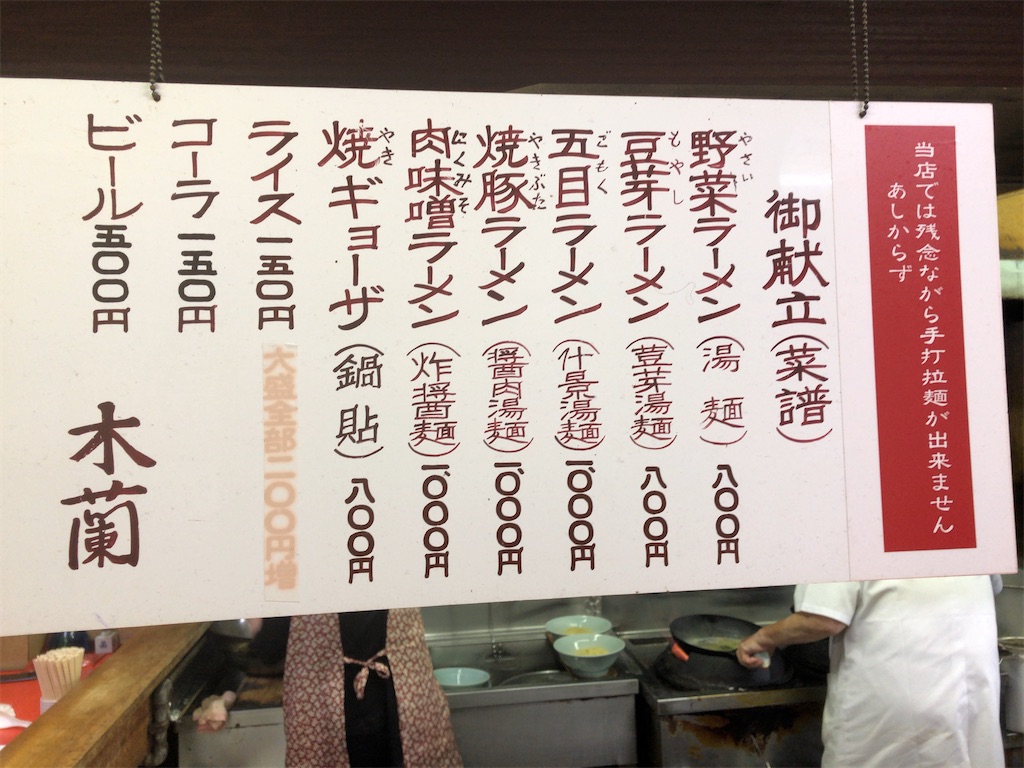 当店では残念ながら手打拉麺が出来ません
あしからず
御献立(菜譜)
野菜ラーメン(湯麺)八〇〇円
やさい
豆芽ラーメン(荳芽湯麺)八〇〇円
もやし
五目ラーメン(什景湯麺)一、〇〇〇円
ごもく
焼豚ラーメン(醤肉湯麺)一、〇〇〇円
やきぶた
肉味噌ラーメン(炸醤麺)一、〇〇〇円
にくみそ
焼ギョーザ(鍋貼)八〇〇円
やき
ライス一五〇円
大盛全部二〇〇円増
コーラ一五〇円
ビール五〇〇円
木蘭